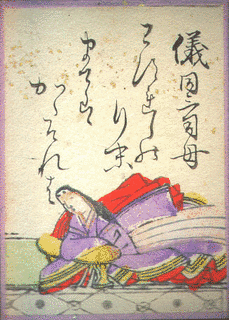 儀同三司母
わすれしの
行末
まては
かたけれは